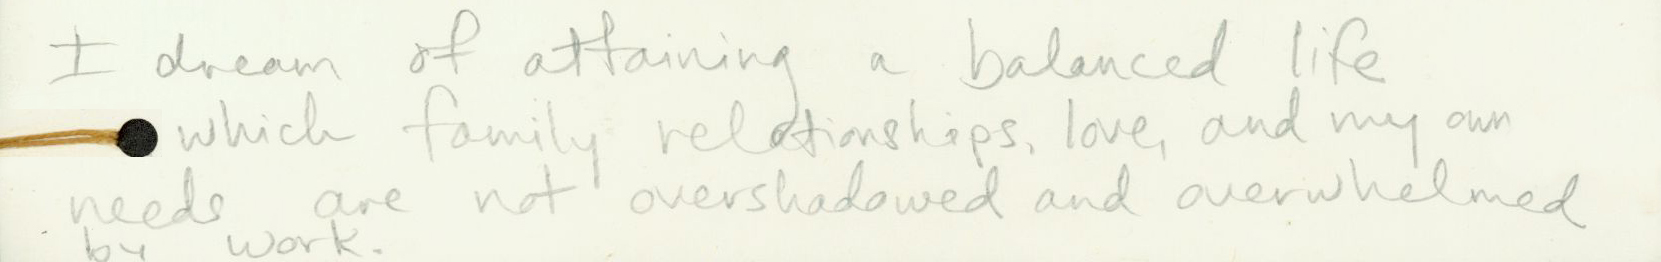 I dream of attaining a balanced life
which family relationships, love, and my own
needs are not overshadowed and overwhelmed
by work.